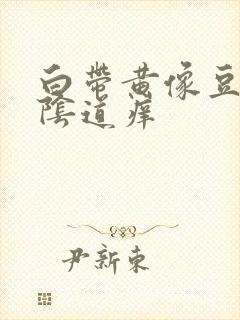 白带黄像豆
陰道痒
尹新東